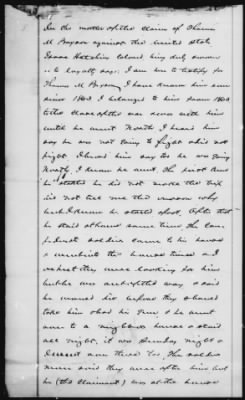 In the matter of the claim of Thomas
M Bryan against the United States
Isaac Hutchins Colored being duly sworn
as to loyalty says: I am here to testify for
Thomas M Bryan, I have known him ever
since 1863. I belonged to him from 1863
till the close of the war was with him
until he went North. I heard him
say he was not going to fight & did not
fight. I heard him say too he was going
North. I know he went. The first time
he started he did not make the trip
did not tell me the reason why
but I know he started afoot. After that
he staid at home some time the Con-
federate soldiers came to his house
& searched the house times and I
expect they were looking for him
but he was out of the way & said
he moved his before they should
take him & he went
over to a neighbors house & staid
all night, it was Sunday night &
I went over there too. The soldiers
never said they were after him but
he (the Claimant) was at the house